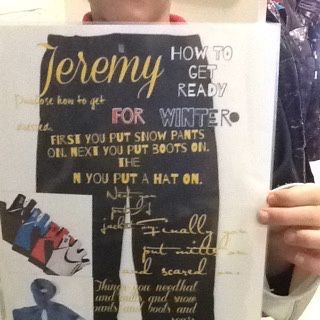 Jeremy
HOW TO
GET
READY
how to get
FOR WINTER
FIRST YOU PUT SNOW PANTS
ON. NEXT YOU PUT BOOTS ON.
THE
N YOU PUT A HAT ON.
Next you
put
jacket
Finally you
put mittens
and scared on.
Things you needhat
and snow
pants and boots and